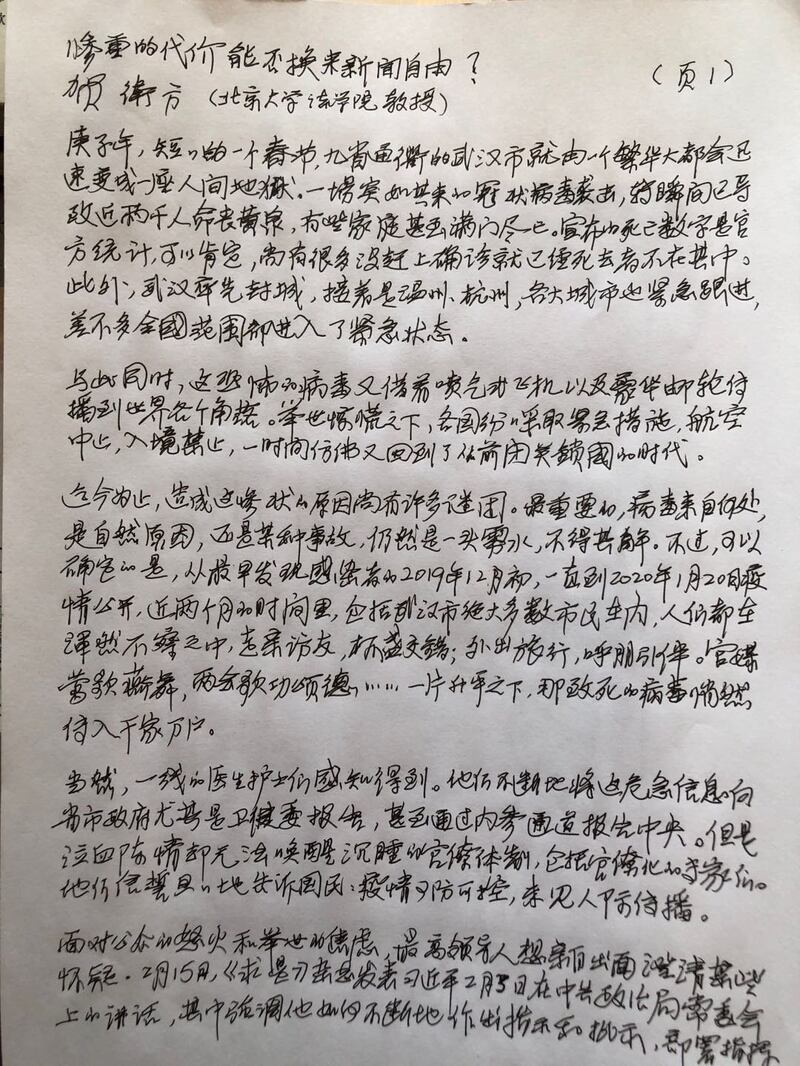 惨重的代价能否换来新闻自由？
贺衛方（北京大学法学院教授） （页1）
庚子年，短短的一个春节，九省通衢的武汉市就由一个繁华大都会迅
速变成一座人间地狱。一场突如其来的冠状病毒袭击，转瞬间已导
致近两千人命丧黄泉，有些家庭甚至满门尽亡。宣布的死亡数字是官
方统计，可以肯定，尚有很多没赶上确诊就已经死去者不在其中。
此外，武汉率先封城，接着是温州、杭州，各大城市也紧急跟进，
差不多全國范围都进入了紧急状态。
与此同时，这恐怖的病毒又借着喷气式飞机以及豪华邮轮传
播到世界各个角落。举世惊慌之下，各国纷纷采取紧急措施，航空
中止，入境禁止，一时间仿佛又回到了从前闭关鎖國的时代。
迄今为止，造成这惨状的原因尚有许多谜团。最重要的，病毒来自何处，
是自然原因，还是某种事故，仍然是一头雾水，不得其解。不过，可以
确定的是，从最早发现感染者的2019年12月初，一直到2020年1月20日疫
情公开，近两个月的时间里，包括武汉市绝大多数市民在内，人们都在
浑然不察之中，走亲访友，杯盏交錯；外出旅行，呼朋引伴。官媒
莺歌燕舞，两会歌功颂德……一片升平之下，那致死的病毒悄然
传入千家万户。
当然，一线的医生护士们感知得到。他们不断地将这危急信息向
省市政府尤其是卫健委报告，甚至通过内参通道报告中央。但是
泣血陈情却无法唤醒沉睡的官僚体制，包括官僚化的专家们。
他们信誓旦旦地告诉国民：疫情可防可控，未见人际传播。
面对公众的怒火和举世的焦虑，最高领导人想亲自出面澄清某些
怀疑。2月15日，《求是》杂志发表习近平2月3日在中共政治局常委会
上的讲话，其中强调他如何不断地作出指示和批示，部署指挥